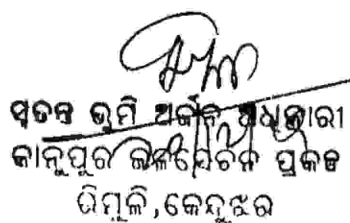 ସ୍ୱତନ୍ତ୍ର ଭୂମି ଅର୍ଜନ ଅଧିକାରୀ
କାନୁପୁର ଜଳସେଚନ ପ୍ରକଳ୍ପ
ରିମୁଳି,କେନ୍ଦୁଝର